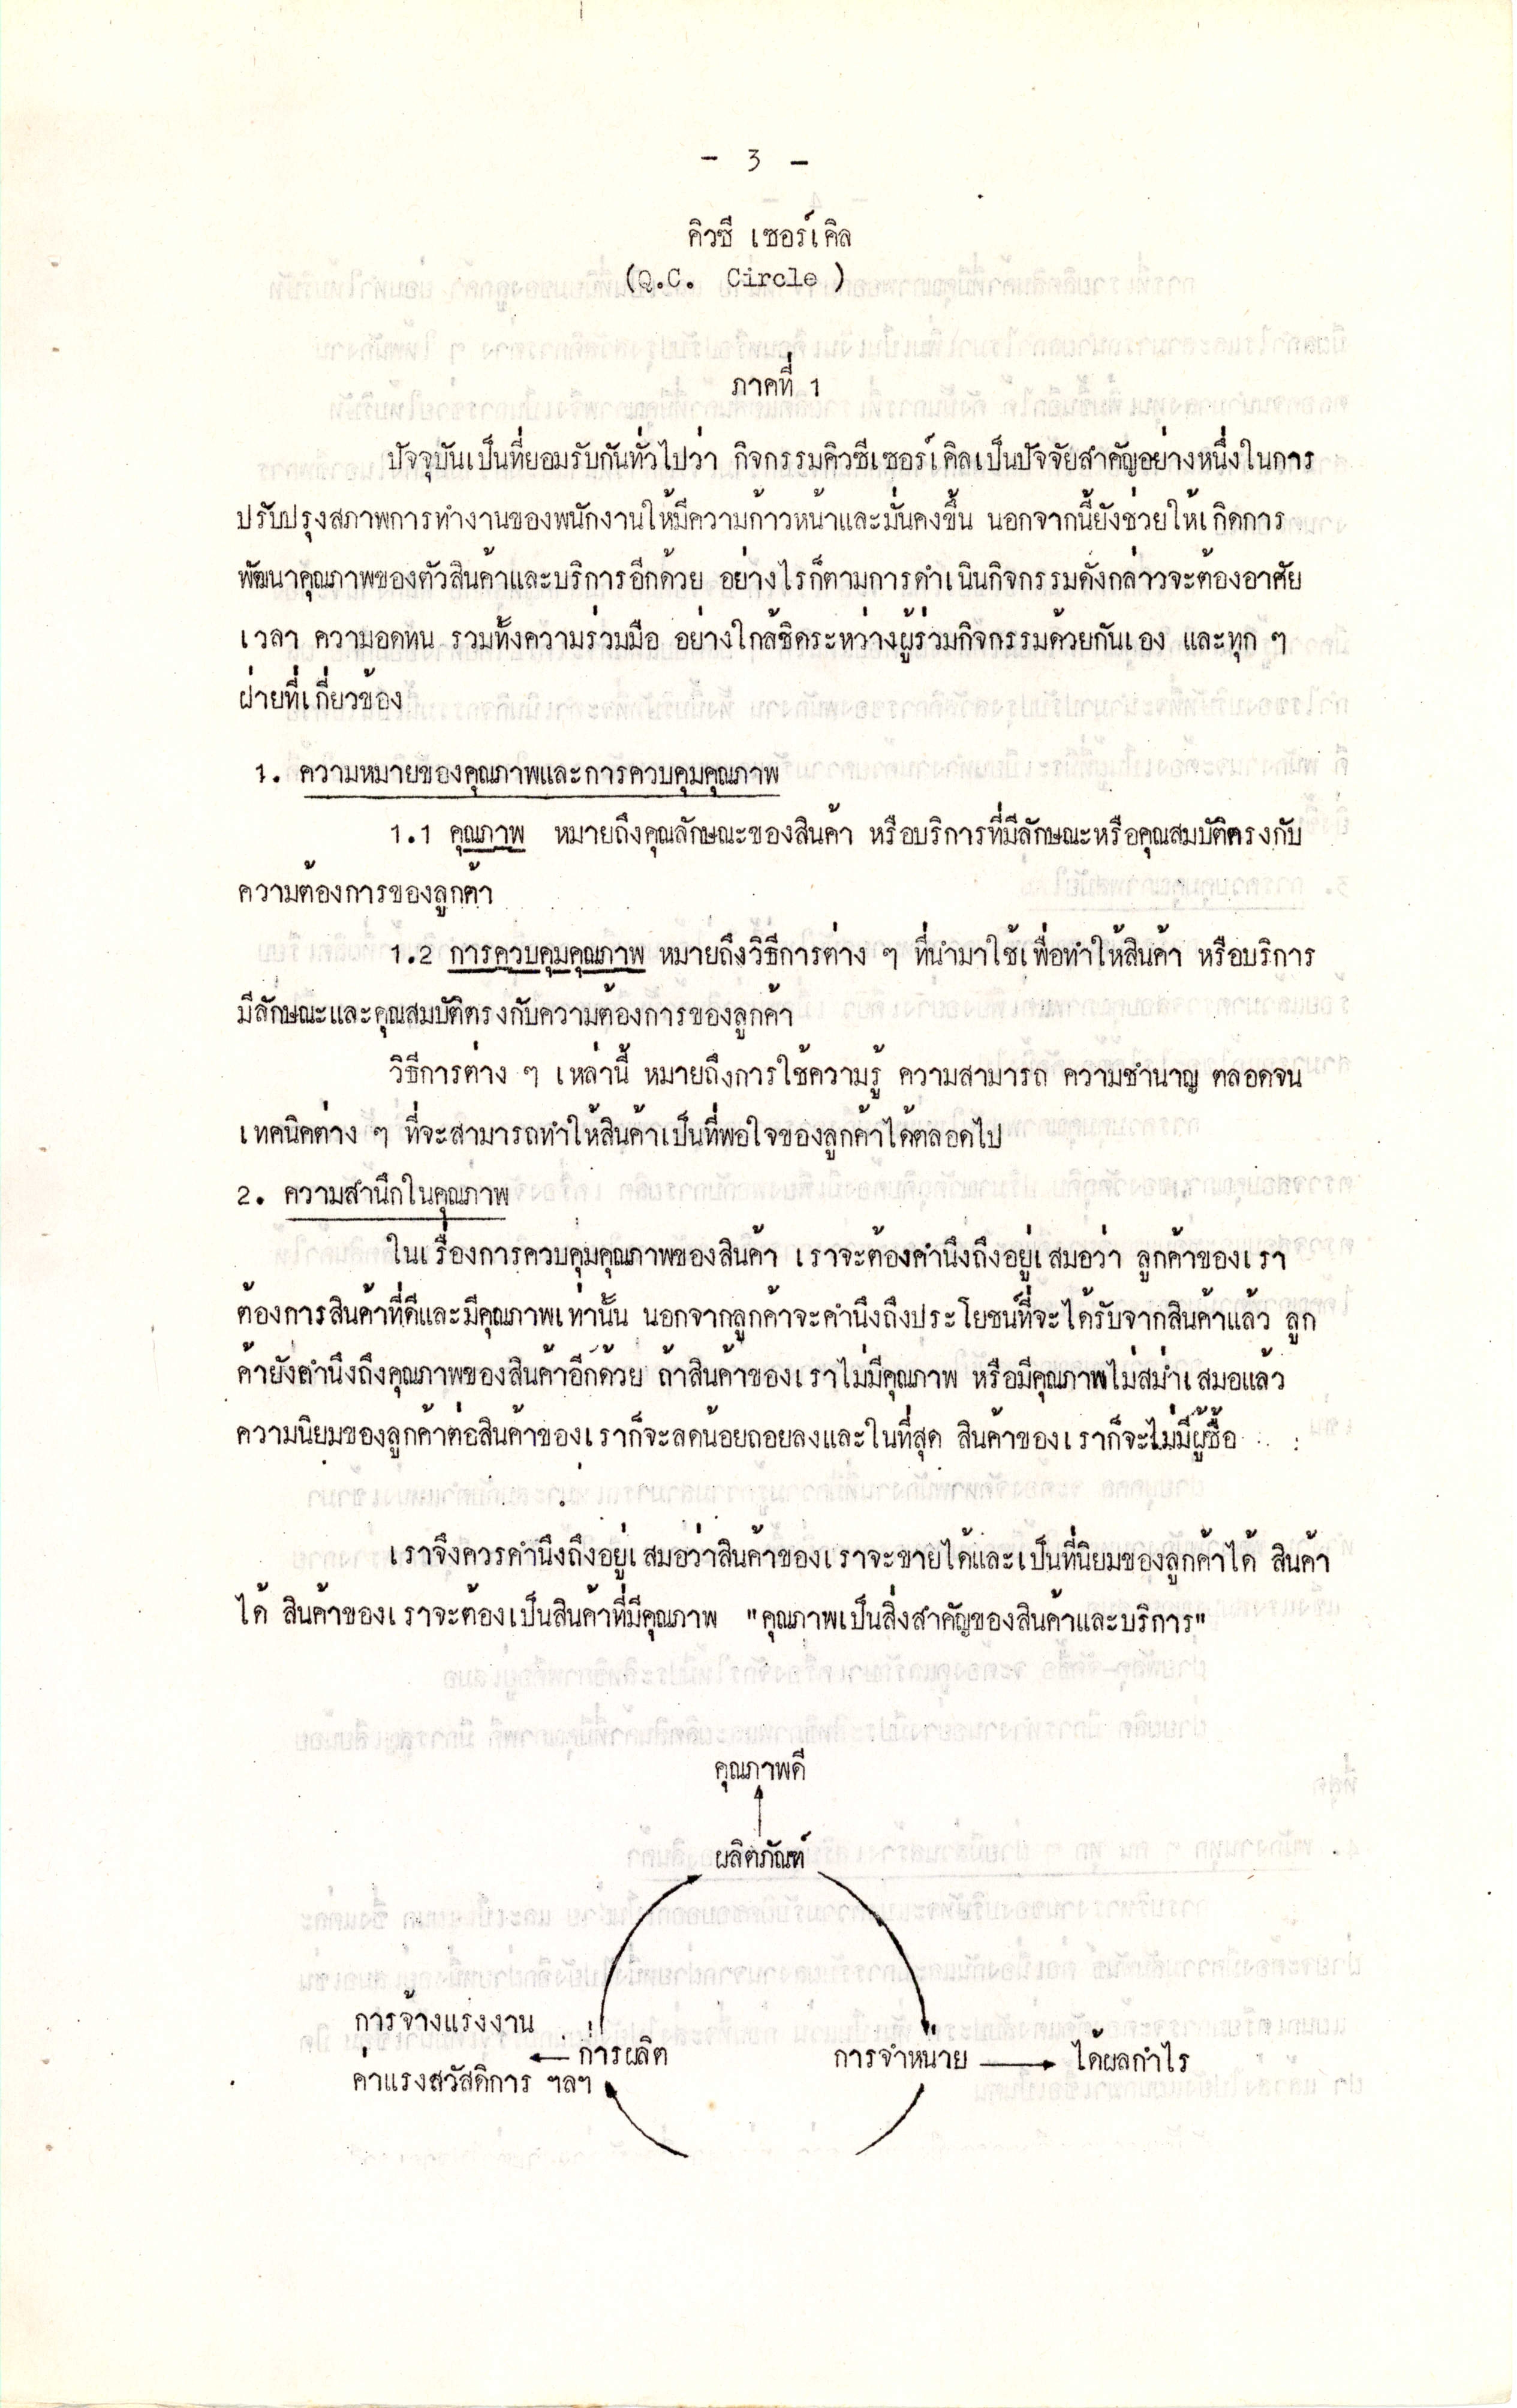 - 3 -
คิวซี เซอร์เคิล
(Q.C. Circle)
ภาคที่ 1
ปัจจุบันเป็นที่ยอมรับกันทั่วไปว่า กิจกรรมคิวซีเซอร์เคิลเป็นปัจจัยสำคัญอย่างหนึ่งในการ
ปรับปรุงสภาพการทำงานของพนักงานให้มีความก้าวหน้าและมั่นคงขึ้น นอกจากนี้ยังช่วยให้เกิดการ
พัฒนาคุณภาพของตัวสินค้าและบริการอีกด้วย อย่างไรก็ตามการดำเนินกิจกรรมดังกล่าวจะต้องอาศัย
เวลา ความอดทน รวมทั้งความร่วมมือ อย่างใกล้ชิดระหว่างผู้ร่วมกิจกรรมด้วยกันเอง และทุก ๆ
ฝ่ายที่เกี่ยวข้อง
1. ความหมายของคุณภาพและการควบคุมคุณภาพ
1.1 คุณภาพ หมายถึงคุณลักษณะของสินค้า หรือบริการที่มีลักษณะหรือคุณสมบัติตรงกับ
ความต้องการของลูกค้า
1.2 การควบคุมคุณภาพ หมายถึงวิธีการต่าง ๆ ที่นำมาใช้เพื่อทำให้สินค้า หรือบริการ
มีลักษณะและคุณสมบัติตรงกับความต้องการของลูกค้า
วิธีการต่าง ๆ เหล่านี้ หมายถึงการใช้ความรู้ ความสามารถ ความชำนาญ ตลอดจน
เทคนิคต่าง ๆ ที่จะสามารถทำให้สินค้าเป็นที่พอใจของลูกค้าได้ตลอดไป
2. ความสำนึกในคุณภาพ
ในเรื่องการควบคุมคุณภาพของสินค้า เราจะต้องคำนึงถึงอยู่เสมอว่า ลูกค้าของเรา
ต้องการสินค้าที่ดีและมีคุณภาพเท่านั้น นอกจากลูกค้าจะคำนึงถึงประโยชน์ที่จะได้รับจากสินค้าแล้ว ลูก
ค้ายังคำนึงถึงคุณภาพของสินค้าอีกด้วย ถ้าสินค้าของเราไม่มีคุณภาพ หรือมีคุณภาพไม่สม่ำเสมอแล้ว
ความนิยมของลูกค้าต่อสินค้าของเราก็จะลดน้อยถอยลงและในที่สุด สินค้าของเราก็จะไม่มีผู้ซื้อ
เราจึงควรคำนึงถึงอยู่เสมอว่าสินค้าของเราจะขายได้และเป็นที่นิยมของลูกค้าได้ สินค้า
ได้ สินค้าของเราจะต้องเป็นสินค้าที่มีคุณภาพ "คุณภาพเป็นสิ่งสำคัญของสินค้าและบริการ"
คุณภาพดี
ผลิตภัณฑ์
การจ้างแรงงาน
← การผลิต การจำหน่าย → ได้ผลกำไร
ค่าแรงสวัสดิการ ฯลฯ